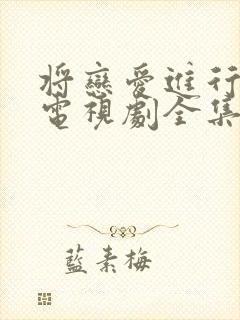 將戀愛進行
電視劇全集
藍素梅